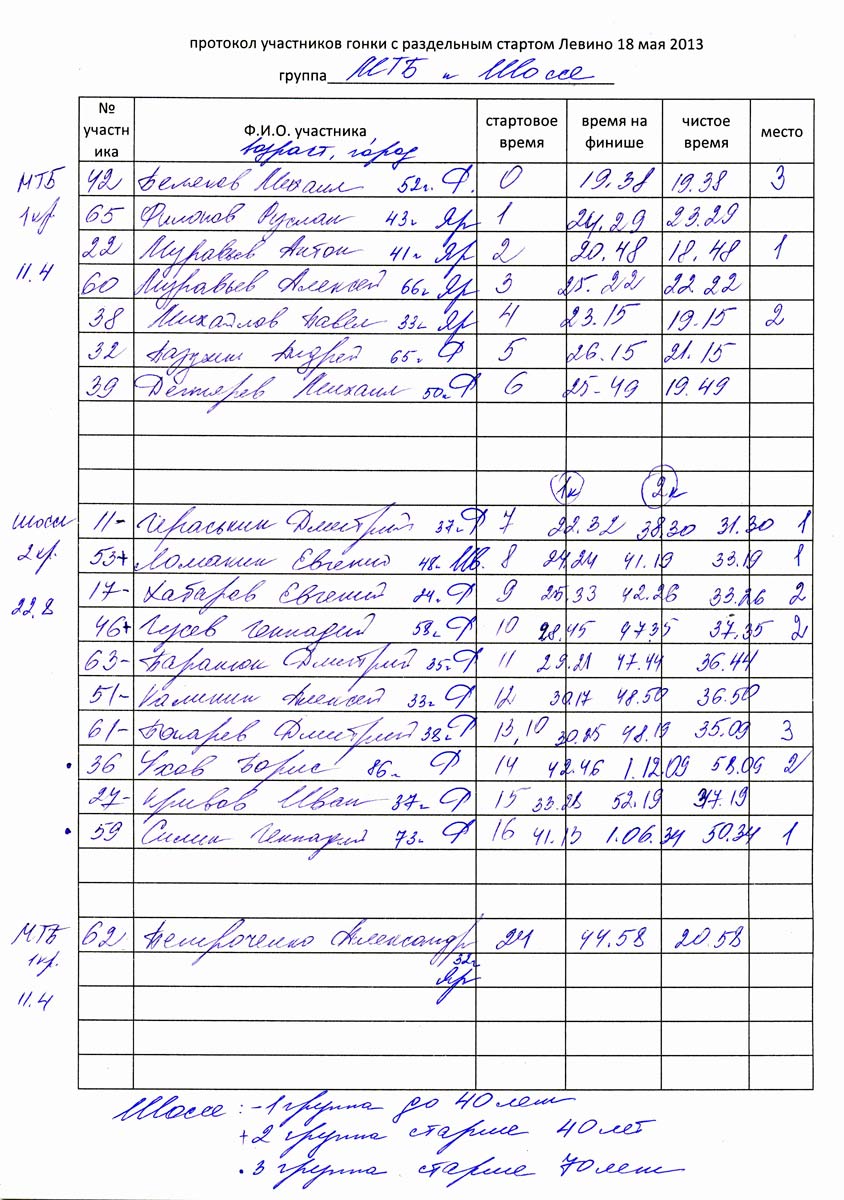 протокол участников гонки с раздельным стартом Левино 18 мая 2013
группа МТБ и Шоссе
№ участн ика Ф.И.О. участника возраст, город стартовое время время на финише чистое время место
МТБ 42 Белехов Михаил 52г. Ф. 0 19.38 19.38 3
1кр 65 Филонов Руслан 43г Яр 1 24.29 23.29
22 Муравьев Антон 41г Яр 2 20.48 18.48 1
11.4 60 Муравьев Алексей 66г Яр 3 25.22 22.22
38 Михайлов Павел 33г Яр 4 23.15 19.15 2
32 Андрей 65г Ф 5 26.15 21.15
39 Дегтярев Михаил 50г Ф 6 25-49 19.49
1к 2к
Шоссе 11- Гераськин Дмитрий 37г Ф 7 22.32 38.30 31.30 1
2кр. 53+ Ломакин Евгений 48г Ив. 8 24.24 41.19 33.19 1
17- Хабаров Евгений 24г. Ф 9 25.33 42.26 33.26 2
22.8 46+ Гусев Геннадий 58г Ф 10 28.45 47.35 37.35 2
63- Дмитрий 35г Ф 11 29.21 47.44 36.44
51- Калинин Алексей 33г Ф 12 30.17 48.50 36.50
61- Дмитрий 38г Ф 13,10 30.25 48.19 35.09 3
• 36 Ухов Борис 86г Ф 14 42.46 1.12.09 58.09 2
27- Кривов Иван 37г Ф 15 33.28 52.19 37.19
• 59 Силин Геннадий 73г Ф 16 41.13 1.06.34 50.34 1
МТБ 62 Петроченко Александр 24 44.58 20.58
1кр. 32г
Яр
11.4
Шоссе: - 1 группа до 40 лет
+ 2 группа старше 40 лет
• 3 группа старше 70 лет